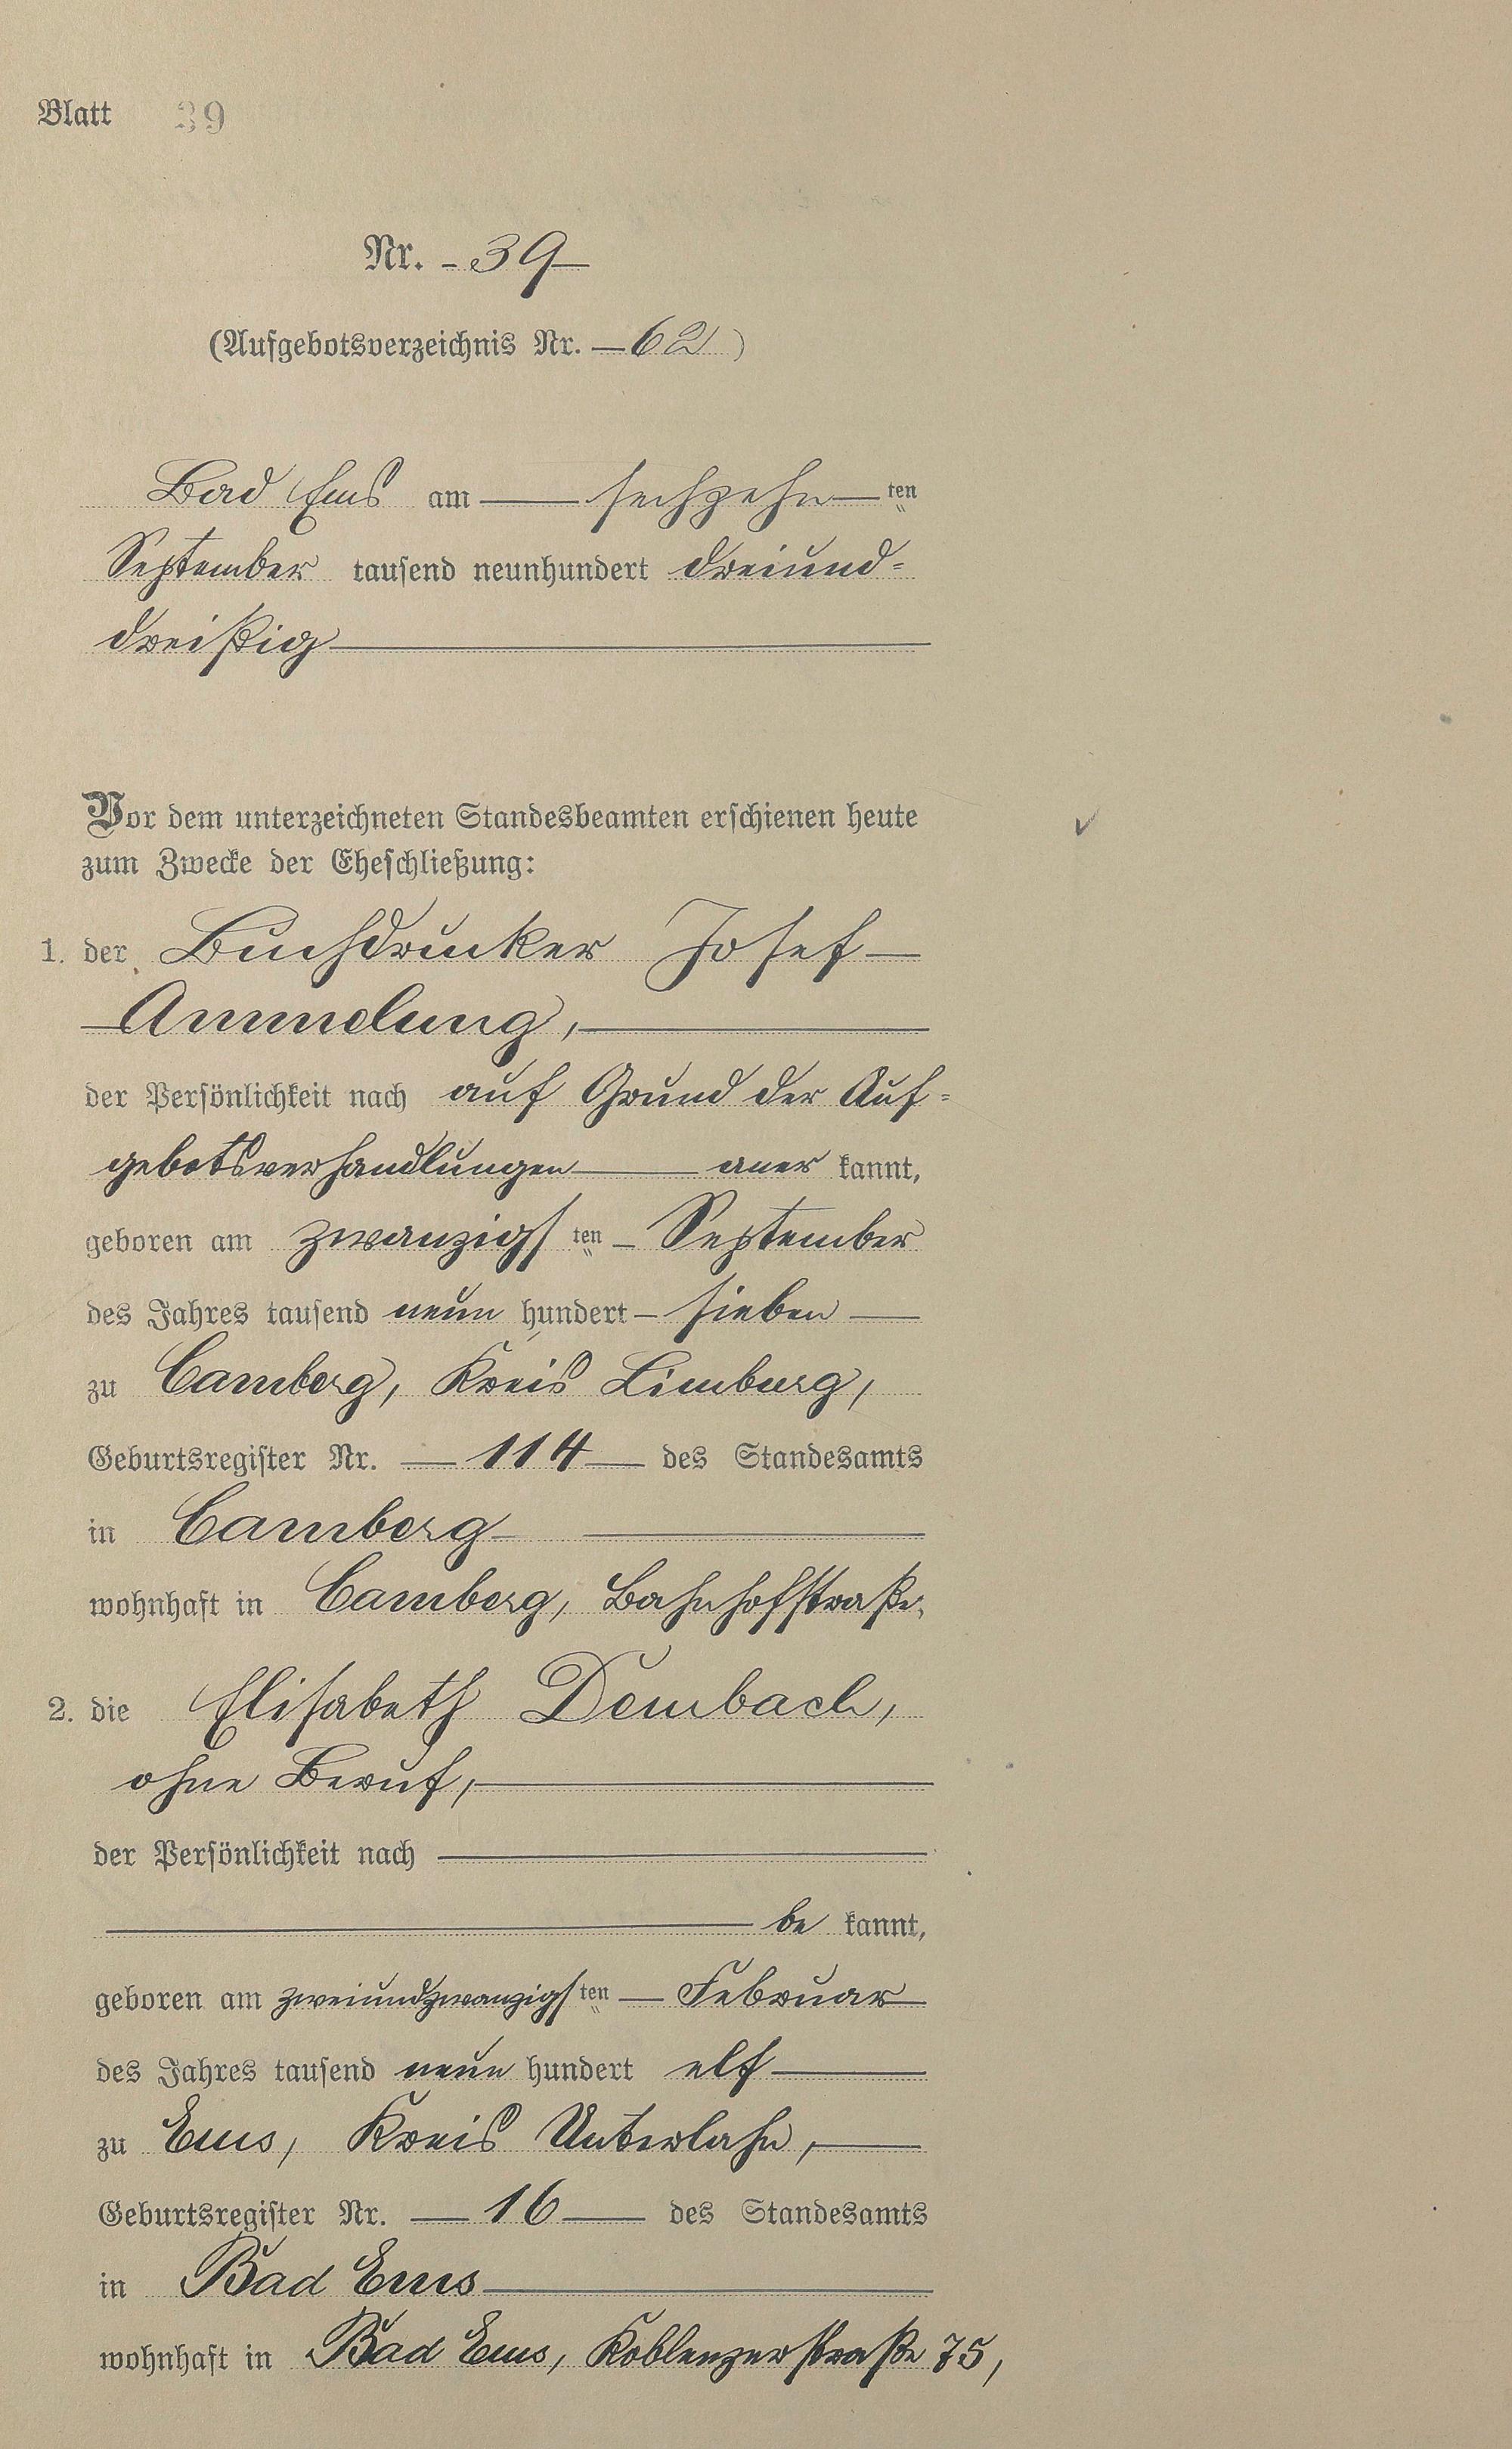 Blatt 39
Nr. - 39 -
(Aufgebotsverzeichnis Nr. — 62)
Bad Ems am — sechzehn — ten
September tausend neunhundert dreiund=
dreißig —
Vor dem unterzeichneten Standesbeamten erschienen heute
zum Zwecke der Eheschließung:
1. der Buchdrucker Josef —
— Ammelung, —
der Persönlichkeit nach auf Grund der Auf=
gebotsverhandlungen — aner kannt,
geboren am zwanzigs ten — September
des Jahres tausend neun hundert — sieben —
zu Camberg, Kreis Limburg,
Geburtsregister Nr. — 114 — des Standesamts
in Camberg —
wohnhaft in Camberg, Bahnhofstraße,
2. die Elisabeth Dembach,
ohne Beruf, —
der Persönlichkeit nach —
— be kannt,
geboren am zweiundzwanzigs ten — Februar —
des Jahres tausend neun hundert elf —
zu Ems, Kreis Unterlahn, —
Geburtsregister Nr. — 16 — des Standesamts
in Bad Ems —
wohnhaft in Bad Ems, Koblenzerstraße 75,